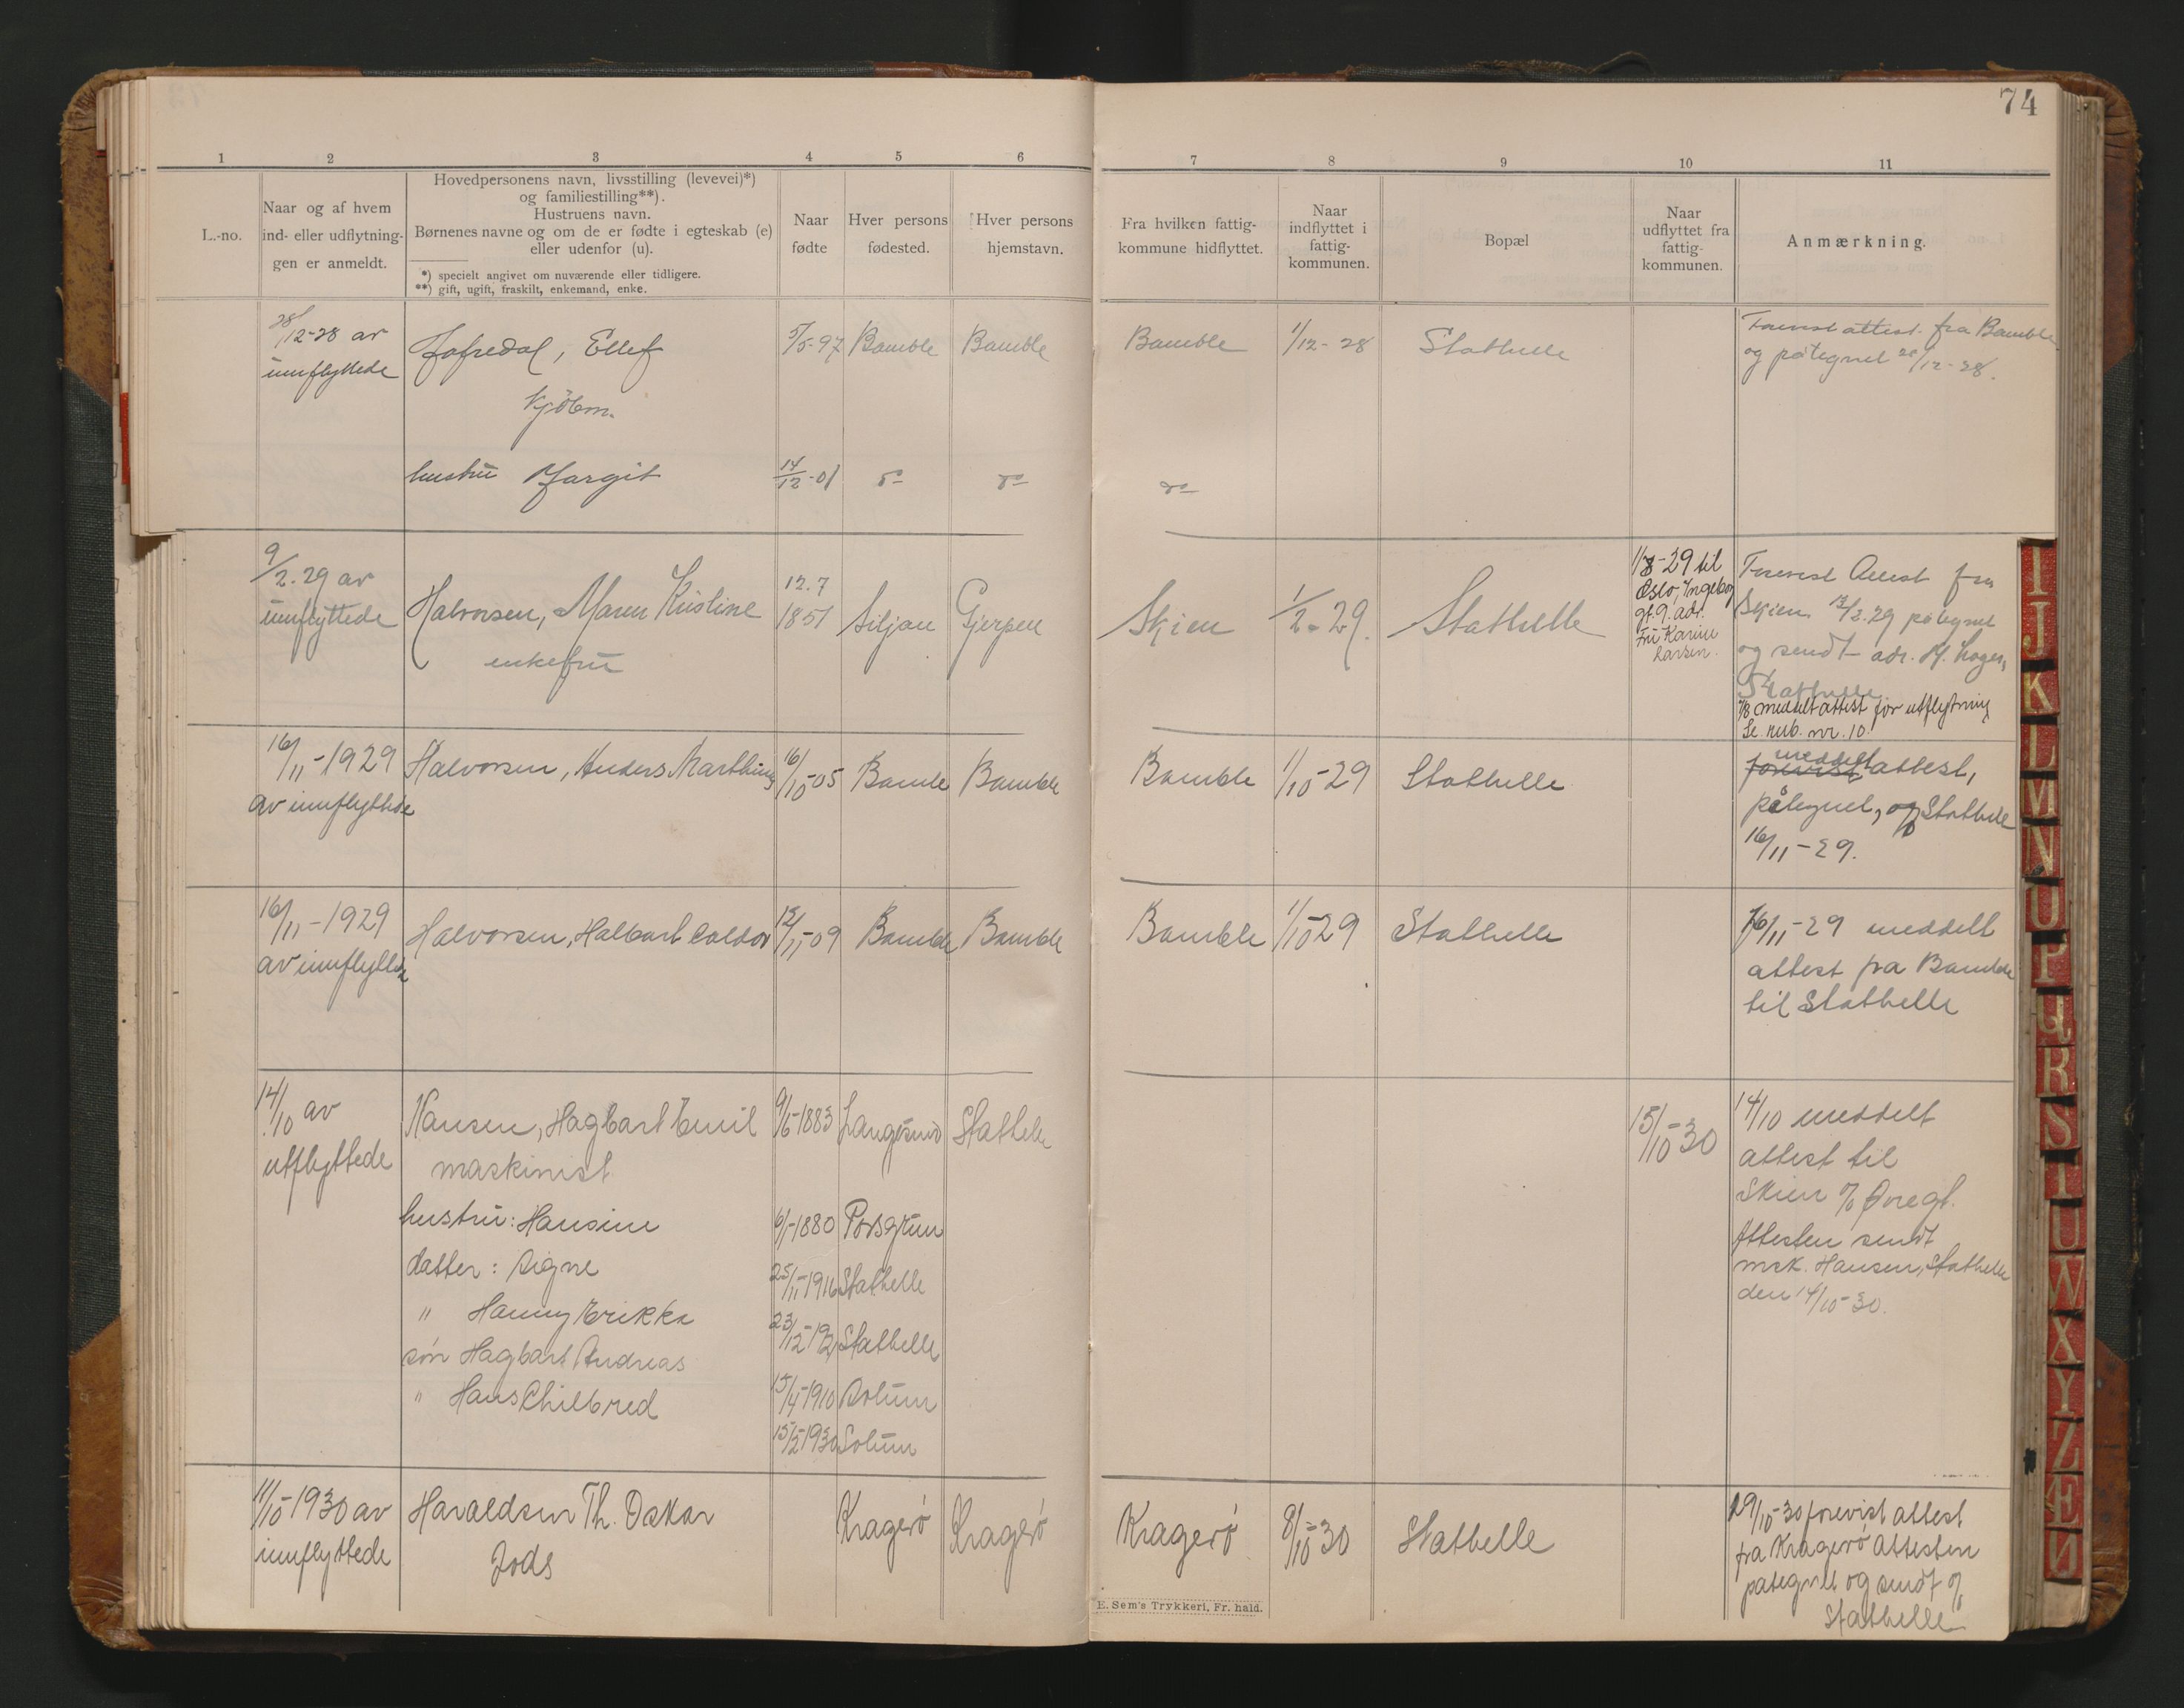 74
1 2 3 4 5 6 7 8 9 10 11
L.-no.
Naar og af hvem
ind- eller udflytnin-
gen er anmeldt.
Hovedpersonens navn, livsstilling (levevei)*)
og familiestilling**).
Hustruens navn.
Børnenes navne og om de er fødte i egteskab (e)
eller udenfor (u).
*) specielt angivet om nuværende eller tidligere.
**) gift, ugift, fraskilt, enkemand, enke.
Naar
fødte
Hver persons
fødested.
Hver persons
hjemstavn.
Fra hvilken fattig-
kommune hidflyttet.
Naar
indflyttet i
fattig-
kommunen.
Bopæl
Naar
udflyttet fra
fattig-
kommunen.
Anmærkning.
28/12-28 av
innflyttede
Ellef
Kjöbm.
5/5-97
Bamble
Bamble
Bamble
1/12-28
Stathelle
Forevist attest fra Bamble
og påtegnet 28/12-28.
hustru Margit
14/12-01
do
do
do
9/2.29 av
innflyttede
Halvorsen, Maren Kristine
enkefru
12.7
1851
Siljan
Gjerpen
Skien
1/2-29.
Stathelle
1/8-29 til
Oslo, Ingeborg
gt. 9. adr.
Fru Karin
Larsen.
Forevist Attest fra
Skien 12/2.29 påtegnet
og sendt adr.
Stathelle
7/8 meddelt attest for utflytning
Se rub. nr. 10.
16/11-1929
av innflyttede
Halvorsen, Anders Marthinus
16/10-05
Bamble
Bamble
Bamble
1/10-29
Stathelle
meddelt
forevist attest,
påtegnet, op Stathelle
16/11-29.
16/11-1929
av innflyttede
Halvorsen, Halbart
12/11-09
Bamble
Bamble
Bamble
1/10-29
Stathelle
16/11-29 meddelt
attest fra Bamble
til Stathelle
14/10 av
utflyttede
Hansen, Hagbart Emil
maskinist
9/6-1883
Langesund
Stathelle
15/10-30
14/10 meddelt
attest til
Skien
Attesten sendt
msk. Hansen, Stathelle
den 14/10-30.
hustru: Hansine
6/1-1880
Porsgrun
datter: Signe
25/11-1916
Stathelle
" Hanny Erikka
Stathelle
søn Hagbart Andreas
15/4-1910
Solum
" Hans
Solum
11/10-1930 av
innflyttede
Haraldsen Th. Oskar
Kragerö
Kragerö
Kragerö
8/10-30
Stathelle
29/10-30 forevist attest
fra Kragerö Attesten
påtegnet og sendt
Stathelle
E. Sem's Trykkeri, Fr. hald.
I
J
K
L
M
N
O
P
Q
R
S
T
U
W
X
Y
Z
Æ